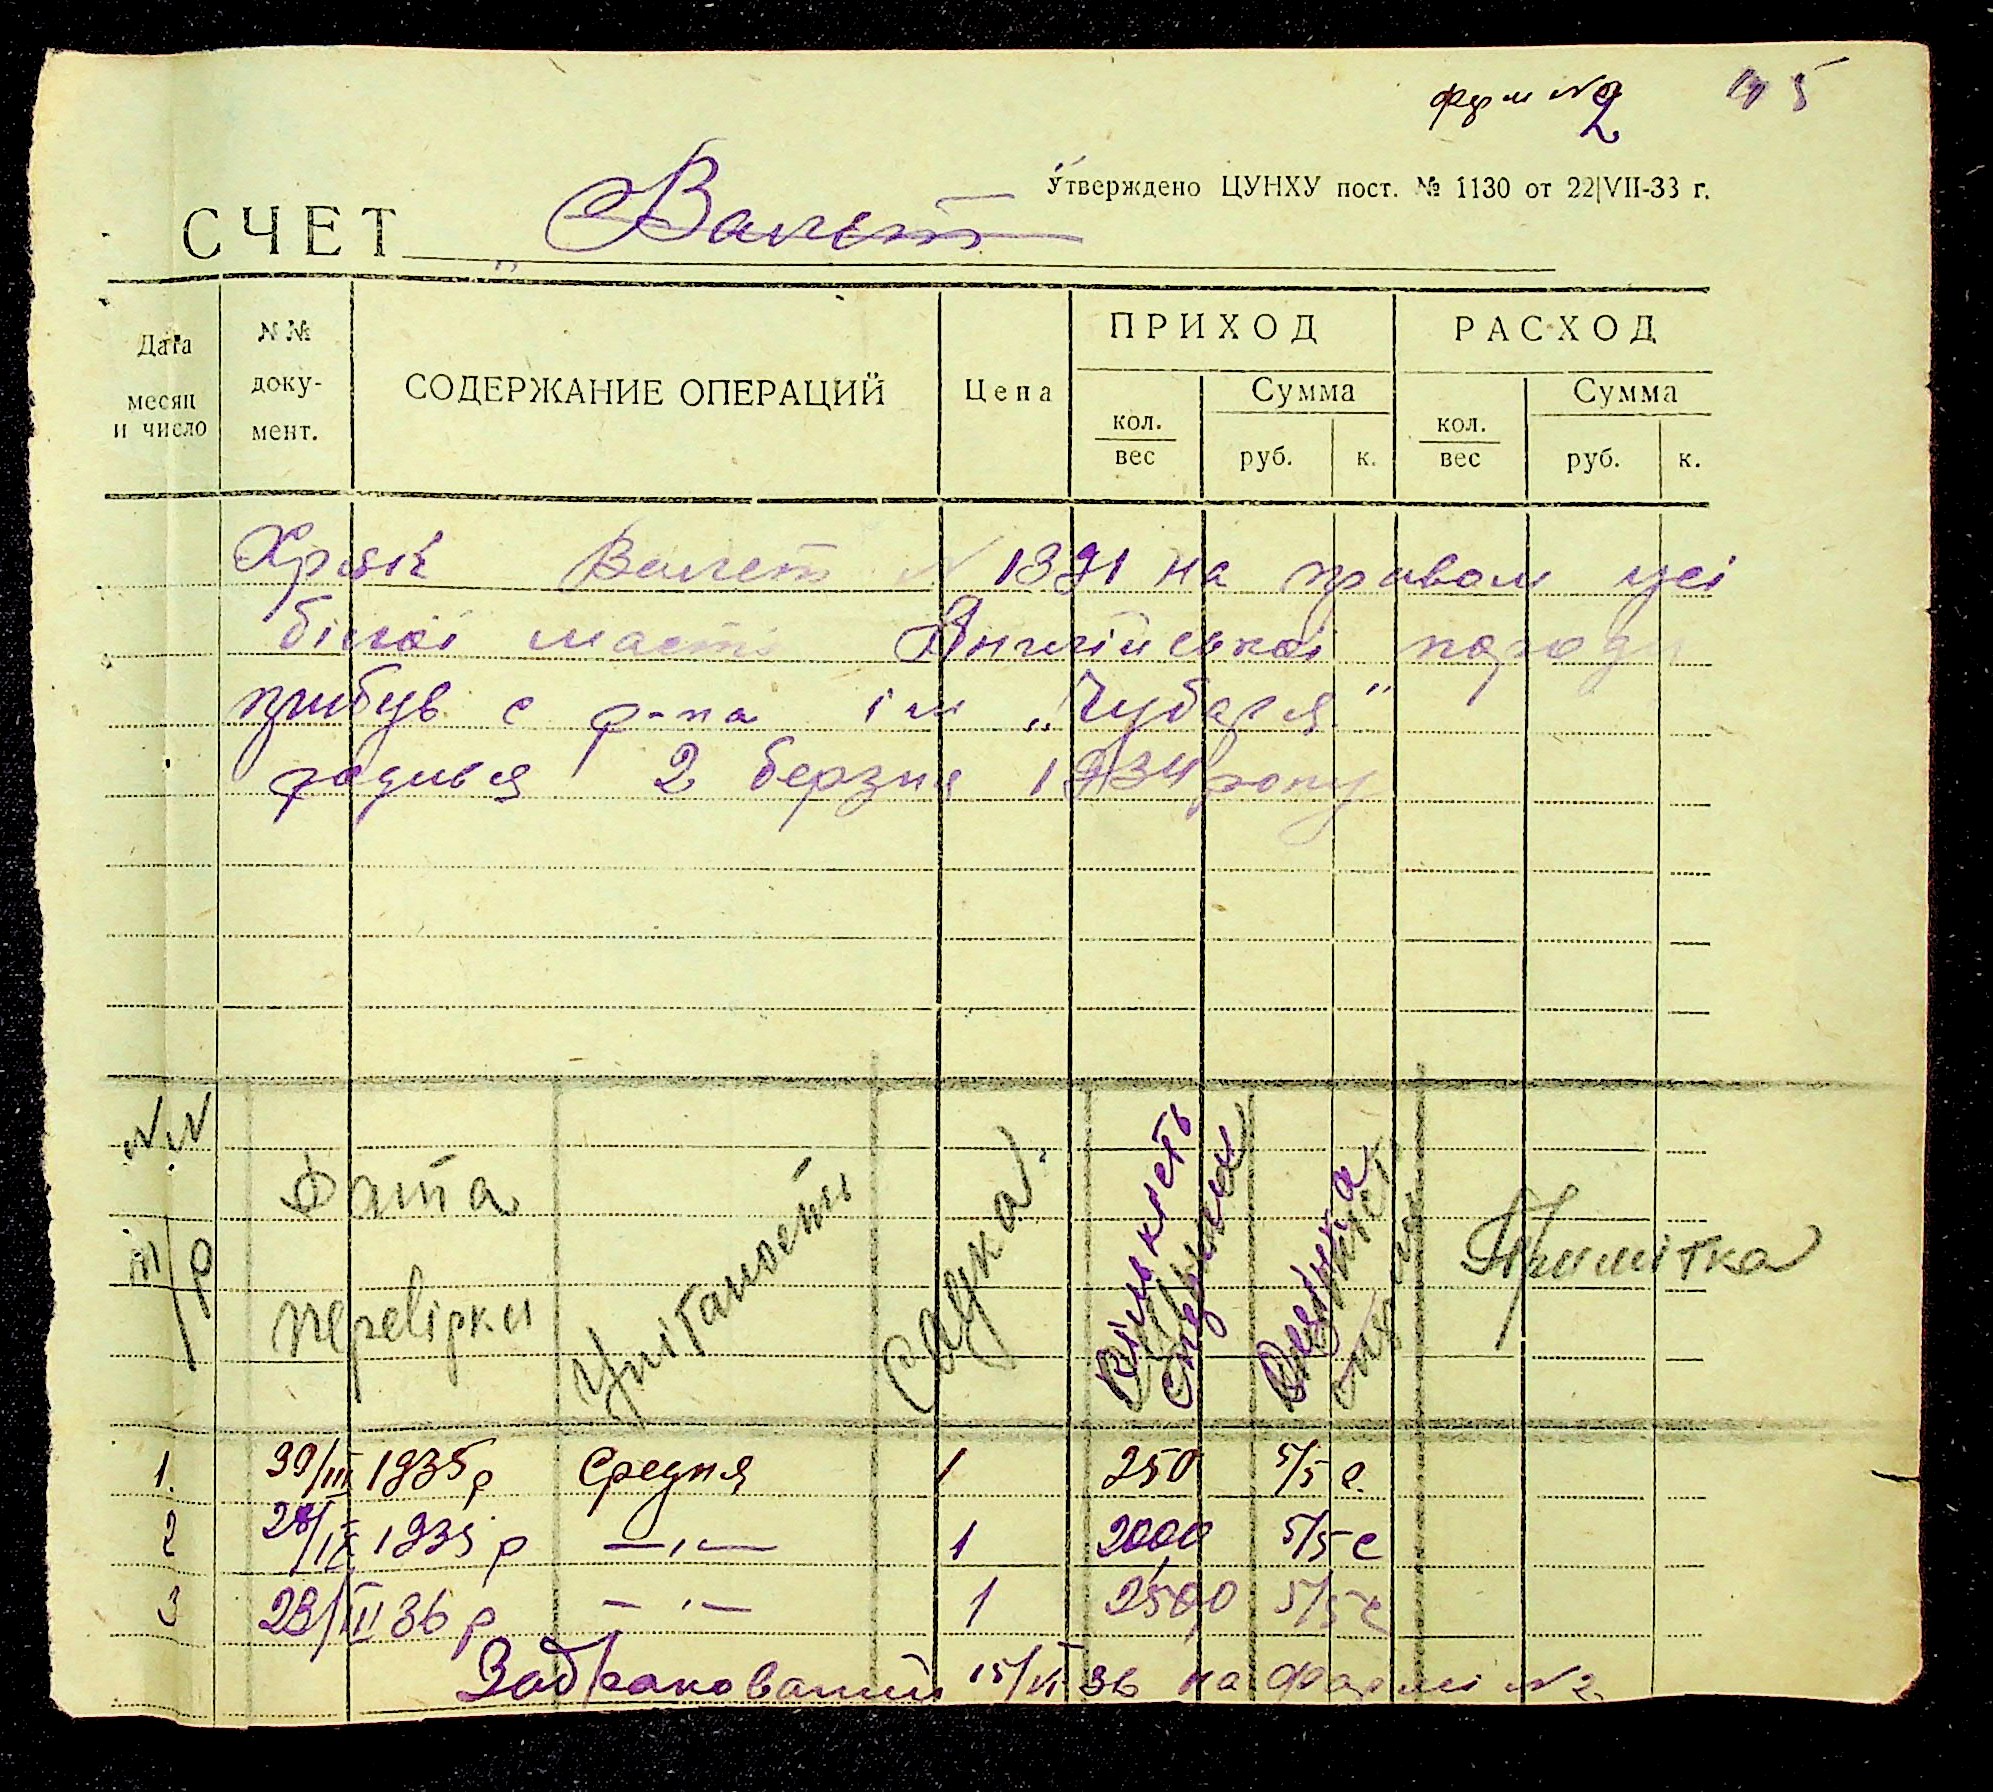 фрм № 2
Утверждено ЦУНХУ пост. № 1130 от 22|VII-33 г.
СЧЕТ „Валет
Дата месяц и число
№№ доку- мент.
СОДЕРЖАНИЕ ОПЕРАЦИЙ
Цена
ПРИХОД
РАСХОД
кол. вес
Сумма
руб.
к.
кол. вес
Сумма
руб.
к.
Хряк Валет № 1391 на правом усі
білої масті Англійської породи
прибув с р-па ім „Чубаря"
родився 2 березня 1934 року
№№ п/р
Дата перевірки
Упітаность
Случка
Кількість
Примітка
1. 30/III 1935 р Средня 1 250 5/5 с.
2 28/IX 1935 р —"— 1 2000 5/5 с
3 23/II 36 р —"— 1 2500 5/5 с
Забракований 15/VI 36 на фармі № 2.